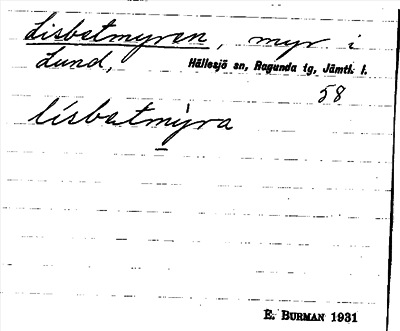 Lisbetmyren, myr i
Lund, Hällesjö sn, Ragunda tg, Jämtl. l.
58
lísbetmỳra
E. BURMAN 1931